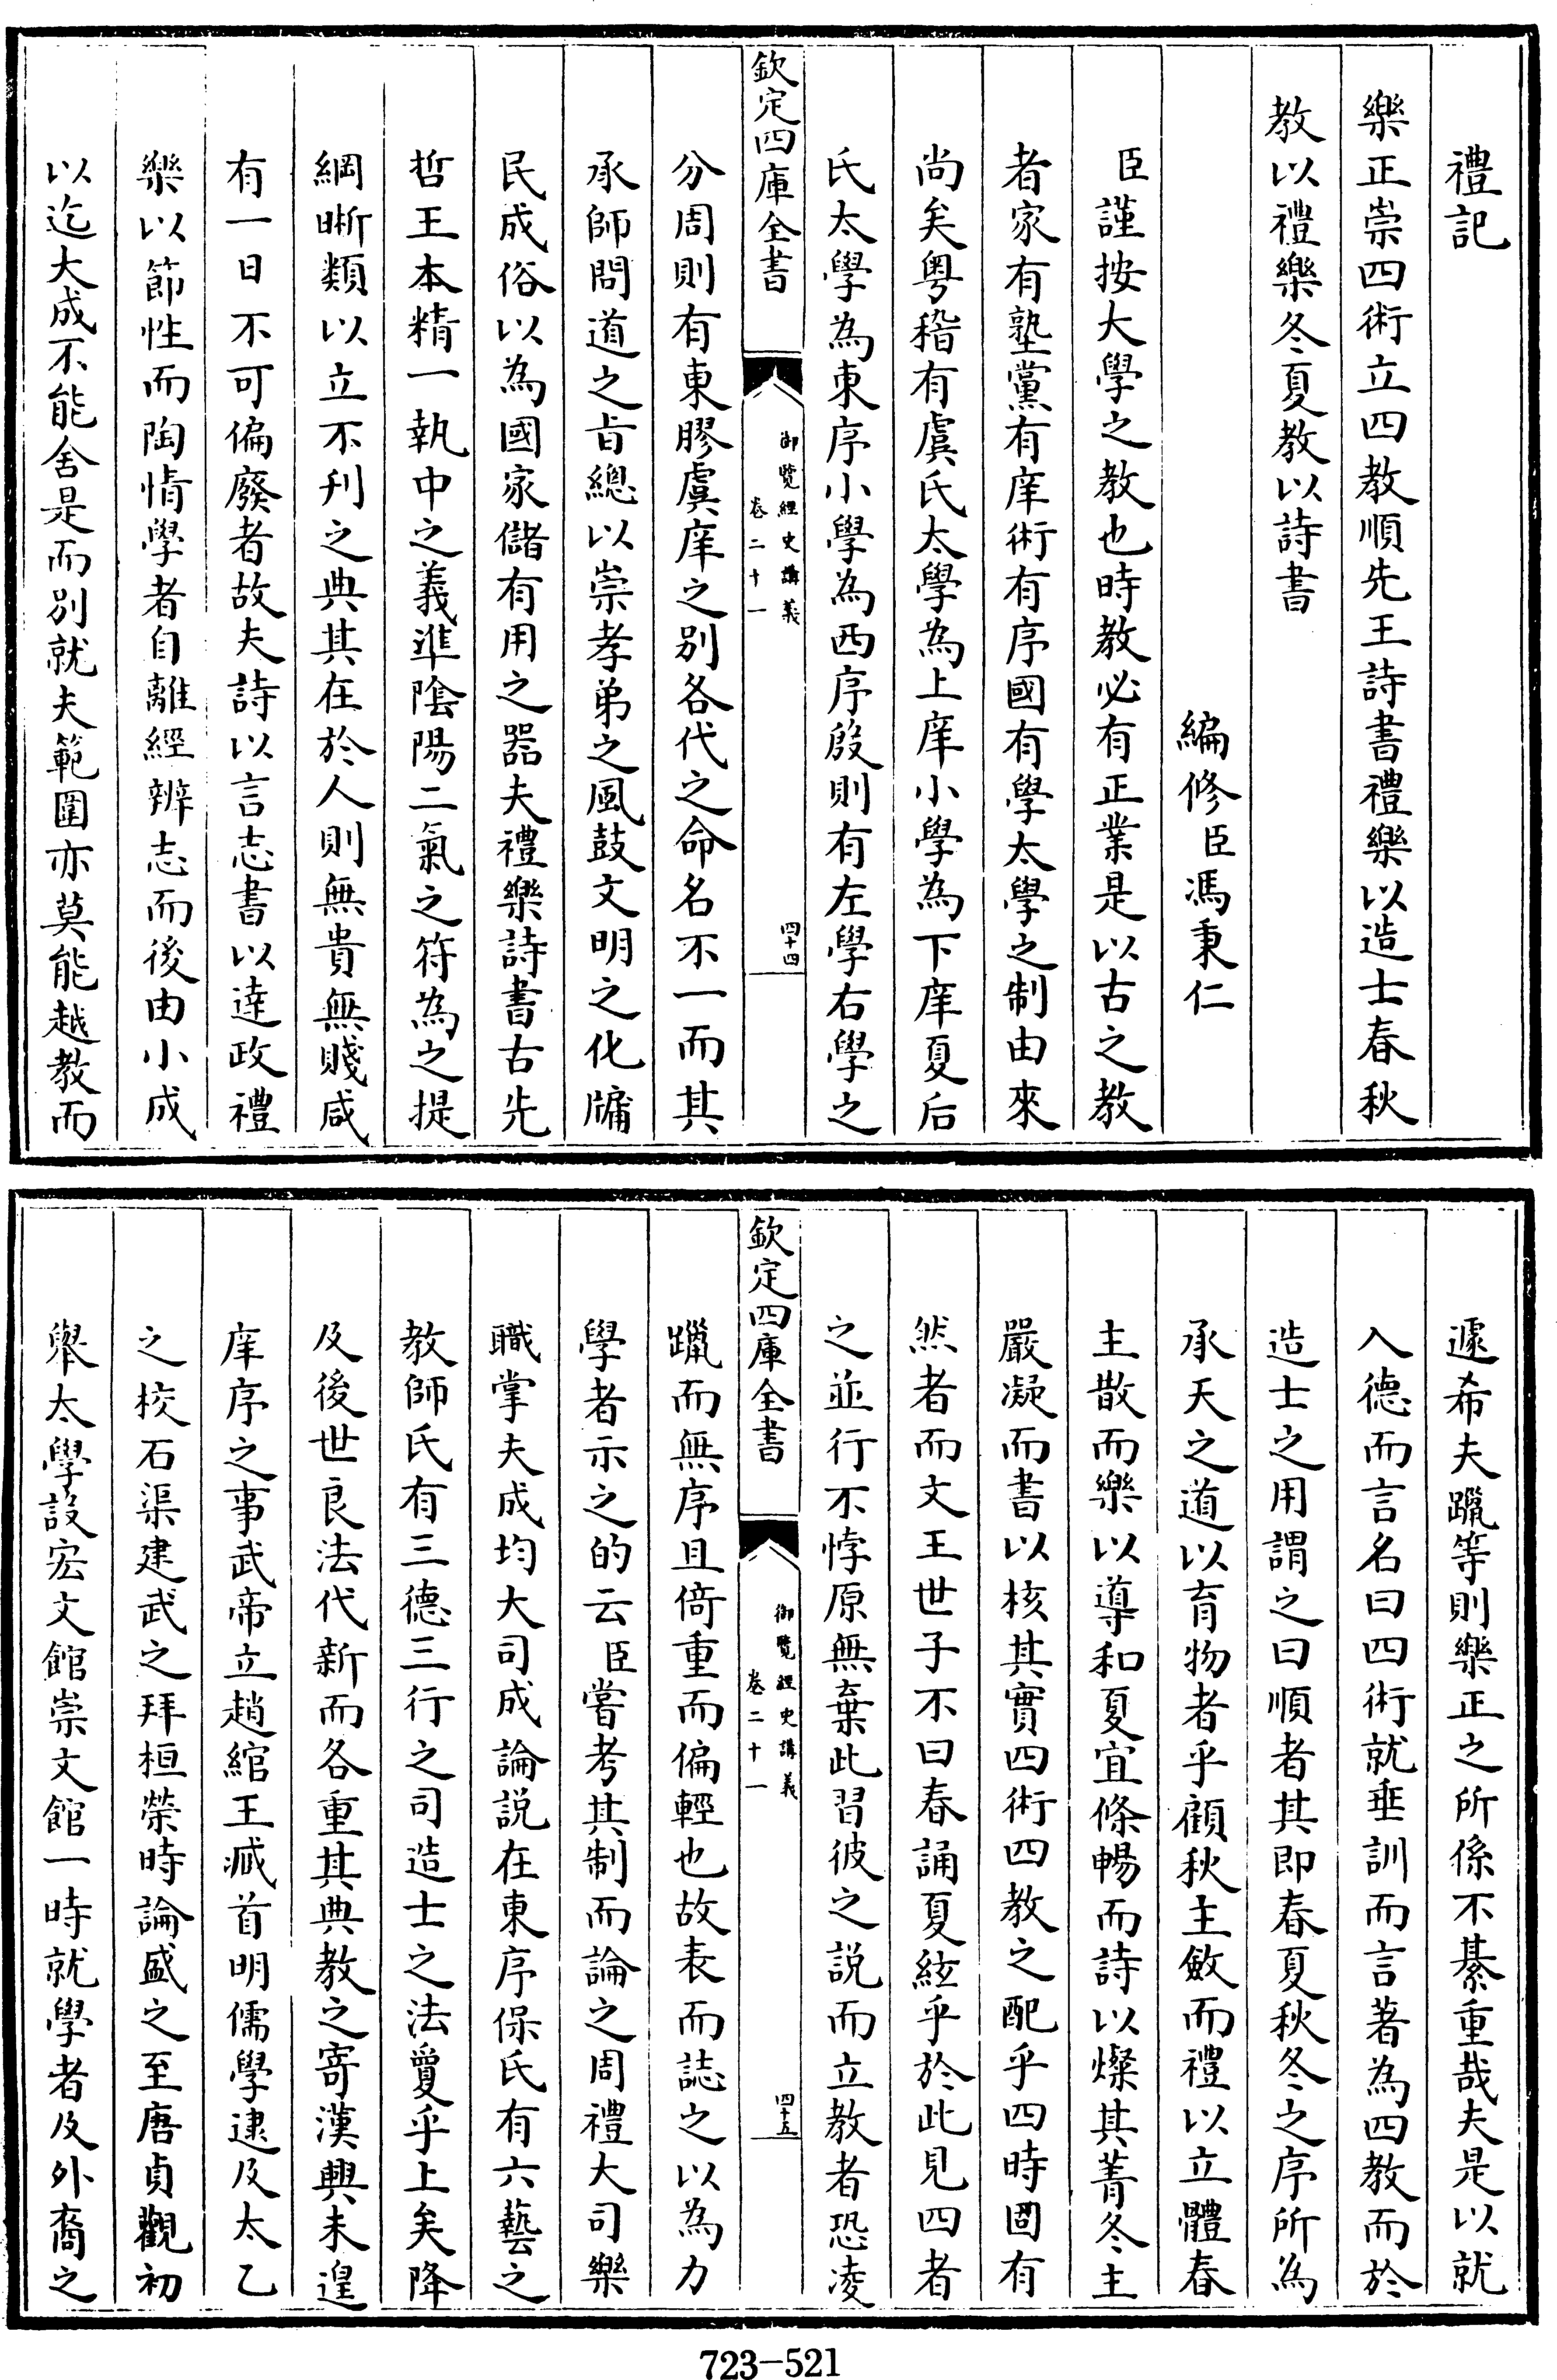 禮記
樂正崇四術立四教順先王詩書禮樂以造士春秋
教以禮樂冬夏教以詩書
編修臣馮秉仁
臣謹按大學之教也時教必有正業是以古之教
者家有塾黨有庠術有序國有學太學之制由來
尚矣粤稽有虞氏太學為上庠小學為下庠夏后
氏太學為東序小學為西序殷則有左學右學之
欽定四庫全書
御覽經史講義
卷二十一
四十四
分周則有東膠虞庠之別各代之命名不一而其
承師問道之旨總以崇孝弟之風鼓文明之化牖
民成俗以為國家儲有用之器夫禮樂詩書古先
哲王本精一執中之義準陰陽二氣之符為之提
綱晰類以立不刋之典其在於人則無貴無賤咸
有一日不可偏廢者故夫詩以言志書以達政禮
樂以節性而陶情學者自離經辨志而後由小成
以迄大成不能舍是而別就夫範圍亦莫能越教而
遽希夫躐等則樂正之所係不綦重哉夫是以就
入德而言名曰四術就垂訓而言著為四教而於
造士之用謂之曰順者其即春夏秋冬之序所為
承天之道以育物者乎顧秋主斂而禮以立體春
主散而樂以導和夏宜條暢而詩以燦其菁冬主
嚴凝而書以核其實四術四教之配乎四時固有
然者而文王世子不曰春誦夏絃乎於此見四者
之並行不悖原無棄此習彼之說而立教者恐凌
欽定四庫全書
御覽經史講義
卷二十一
四十五
躐而無序且倚重而偏輕也故表而誌之以為力
學者示之的云臣嘗考其制而論之周禮大司樂
職掌夫成均大司成論説在東序保氏有六藝之
教師氏有三德三行之司造士之法敻乎上矣降
及後世良法代新而各重其典教之寄漢興未遑
庠序之事武帝立趙綰王臧首明儒學逮及太乙
之校石渠建武之拜桓榮時論盛之至唐貞觀初
舉太學設宏文館崇文館一時就學者及外裔之
723-521